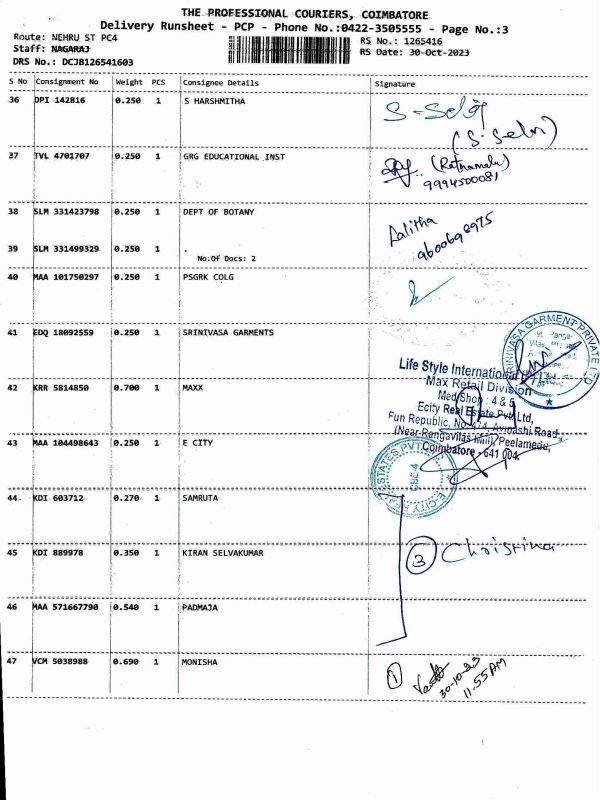 THE PROFESSIONAL COURIERS, COIMBATORE
Delivery Runsheet - PCP - Phone No.:0422-3505555 - Page No.:3
Route: NEHRU ST PC4
RS No.: 1265416
Staff: NAGARAJ
RS Date: 30-Oct-2023
DRS No.: DCJB126541603
S No Consignment No Weight PCS Consignee Details Signature
36 DPI 142816 0.250 1 S HARSHMITHA
S-Selvi
(S. Selvi)
37 TVL 4701707 0.250 1 GRG EDUCATIONAL INST
(Ratnamala)
9994500081
38 SLM 331423798 0.250 1 DEPT OF BOTANY
Lalitha
9600698975
39 SLM 331499329 0.250 1 .
No.Of Docs: 2
40 MAA 101750297 0.250 1 PSGRK COLG
41 EDQ 18092559 0.250 1 SRINIVASA GARMENTS
SRINIVASA GARMENT PRIVATE LTD
Life Style International
Max Retail Division
42 KRR 5814850 0.700 1 MAXX
Med Shop : 4 & 5
Ecity Real Estate Pvt Ltd,
Fun Republic, No 474, Avinashi Road,
(Near Rengavilas Mill), Peelamedu,
Coimbatore - 641 004.
43 MAA 104498643 0.250 1 E CITY
E-CITY ESTATES PVT
CBE-4
44 KDI 603712 0.270 1 SAMRUTA
45 KDI 889978 0.350 1 KIRAN SELVAKUMAR
3 Christina
46 MAA 571667790 0.540 1 PADMAJA
47 VCM 5038988 0.690 1 MONISHA
1
30-10-23
11.55 AM